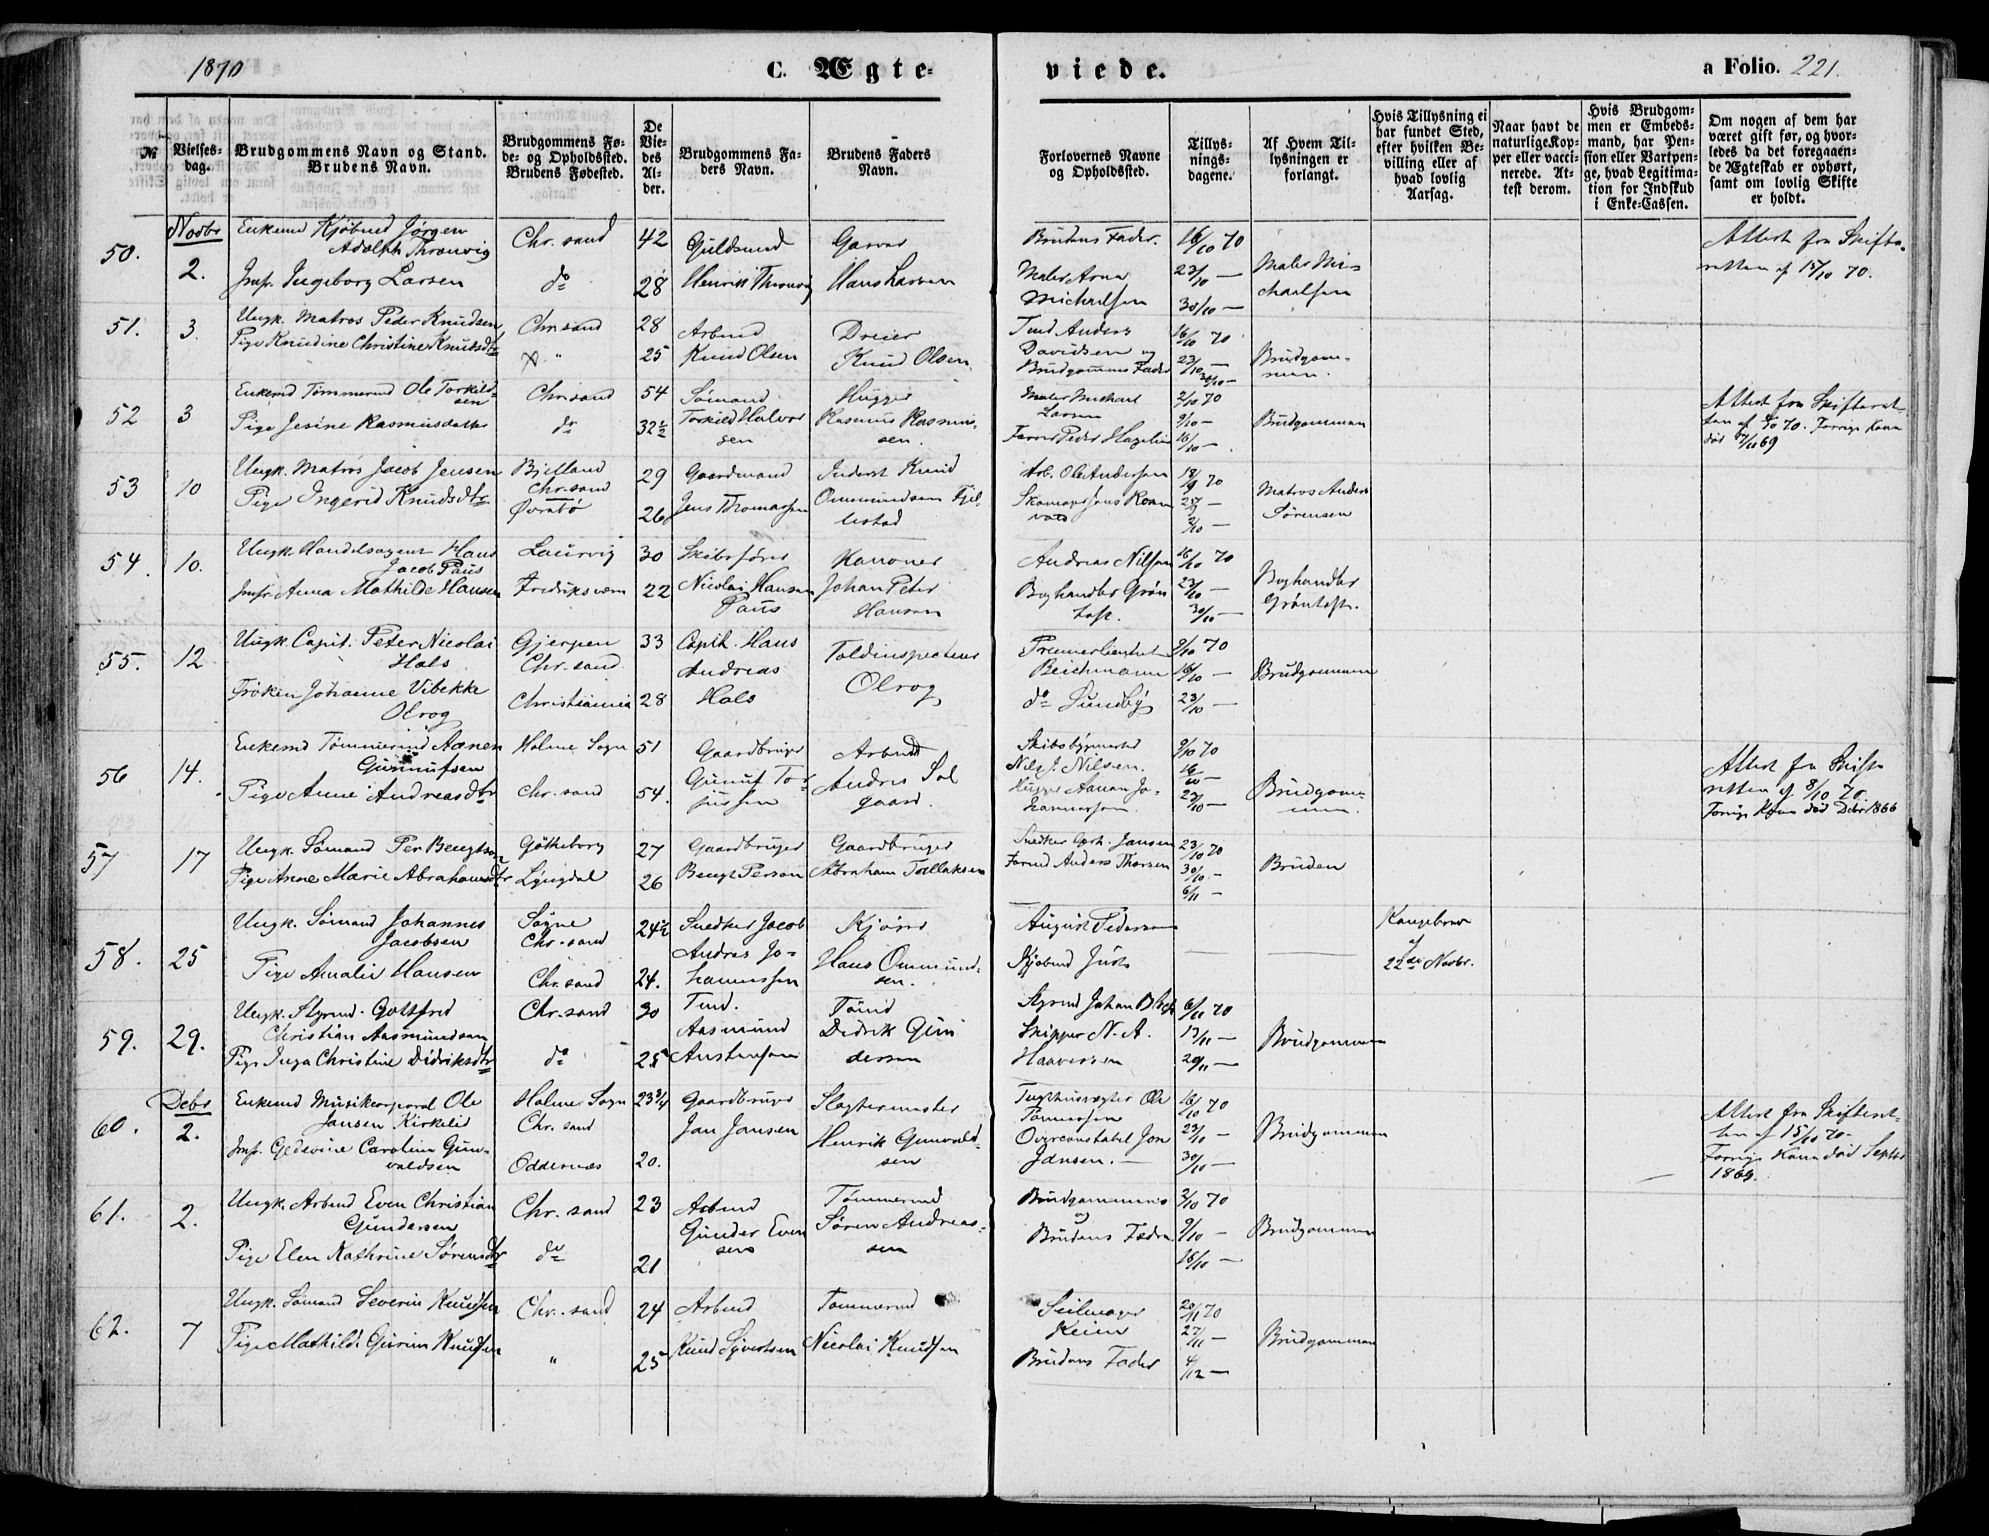 1870
C. Ægte-
viede.
a Folio. 221.
№
Vielses-
dag.
Brudgommens Navn og Stand.
Brudens Navn.
Brudgommens Fø-
de- og Opholdssted.
Brudens Fødested.
De
Vie-
des
Al-
der.
Brudgommens Fa-
ders Navn.
Brudens Faders
Navn.
Forlovernes Navne
og Opholdssted.
Tillys-
nings-
dagene.
Af Hvem Til-
lysningen er
forlangt.
Hvis Tillysning ei
har fundet Sted,
efter hvilken Be-
villing eller af
hvad lovlig
Aarsag.
Naar havt de
naturlige Kop-
per eller vacci-
nerede. At-
test derom.
Hvis Brudgom-
men er Embeds-
mand, har Pen-
sion eller Vartpen-
ge, hvad Legitima-
tion for Indskud
i Enke-Cassen.
Om nogen af dem har
været gift før, og hvor-
ledes da det foregaaen-
de Ægteskab er ophørt,
samt om lovlig Skifte
er holdt.
50.
Novbr
2.
Enkemd Kjøbmd Jørgen
Adolph Thronvig
Jmfr. Ingeborg Larsen
Chr. sand
do
42
28
Guldsmd
Henrik Thronvig
Garver
Hans Larsen
Brudens Fader.
Maler Arne
Michelsen
16/10 70
23/10 —
30/10 —
Maler Mi-
chaelsen
Attest fra Skifte-
retten af 15/10 70.
51.
3.
Ungk. Matros Peder Knudsen
Pige Knudine Christine Knudsdtr
Chr. sand
"
28
25
Arbmd
Knud Olsen
Dreier
Knud Olsen
Tmd Anders
Davidsen og
Brudgommens Fader
16/10 70
23/10 —
30/10 —
Brudgom-
men.
52
3
Enkemd Tømmermd Ole Torkild-
sen
Pige Jesine Rasmusdatter
Chr. sand
do
54
32½
Sømand
Torkild Halvor
sen
Hugger
Rasmus Rasmus-
sen.
Maler Michael
Larsen
Farver Peder Hagelin
2/10 70
9/10 —
16/10 —
Brudgommen
Attest fra Skifteret-
ten af 70. Forrige Kone
død 69
53
10
Ungk. Matros Jacob Jensen
Pige Ingerid Knudsdtr
Bjelland
Chr. sand
Øvrebø
29
26
Gaardmand
Jens Thomassen
Inderst Knud
Ommundsen Fjel-
lestad
Arb. Ole Andersen
18/9 70
25/9 —
2/10 —
Matros Anders
Sørensen
54.
10.
Ungk. Handelsagent Hans
Jacob Paus
Jmfr. Anna Mathilde Hansen
Laurvig
Fredriksværn
30
22
Skibsfører
Nicolai Hansen
Paus
Kanoner
Johan Peter
Hansen
Andreas Nilsen
Boghandler Grøn
toft.
16/10 70
23/10 —
30/10 —
Boghandler
Grøntoft.
55.
12
Ungk. Capit. Peter Nicolai
Hals
Frøken Johanne Vibekke
Olrog
Gjerpen
Chr. sand.
Christiania
33
28
Capit. Hans
Andreas
Hals
Toldinspecteur
Olrog
Premierlieutnt
Beichmann
do Sundby
9/10 70
16/10 —
23/10 —
Brudgommen
56
14.
Enkemd Tømmermd Aanen
Gunnufsen
Pige Anne Andreasdtr
Holme Sogn
Chr. sand
51
54.
Gaardbruger
Gunuf Tor
jussen
Arbmd
Andres Sol
gaard.
Skibsbygmester
Nils J. Nilsen.
Hugger Aanon Jo-
hannessen.
9/10 70
16/10 —
23/10 —
Brudgom-
men
Attest fra Skifte
retten af 8/10 70.
Forrige Kone død Debr 1866
57
17
Ungk. Sømand Per Bengtson
Pige Anne Marie Abrahamsdtr
Gøtheborg
Lyngdal
27
26
Gaardbruger
Bengt Person
Gaardbruger
Abraham Tallaksen
Snedker Jansen
Anders Thorsen
23/10 70
30/10 —
6/11 —
Bruden
58.
25
Ungk. Sømand Johannes
Jacobsen
Pige Amalie Hansen
Søgne
Chr. sand
Chr. sand
24½
24.
Snedker Jacob
Andres Jo-
hannessen
Kjører
Hans Ommund-
sen.
August Pedersen
Kjøbmd Juste
—
—
Kongebrev
af
22de Novbr.
59.
29.
Ungk. Styrmd. Gottfred
Christian Aasmundsen
Pige Inga Christine Didriksdtr
Chr. sand
do
30
25
Tmd.
Aasmund
Austensen
Tømd
Didrik Gun
dersen
Styrmd Johan
Skipper N. A.
Haaversen
6/11 70
13/11 —
20/11 —
Brudgommen
60.
Debr
2.
Enkemd Musikcorporal Ole
Jansen Kirkelid
Jmfr. Gedevine Caroline Gun-
valdsen
Holme Sogn
Chr. sand
Oddernes
23¾
20.
Gaardbruger
Jan Jansen
Slagtermester
Henrik Gunvald-
sen
Tugthusvægter Ole
Tønnessen
Overconstabel Jon
Jansen. —
16/10 70
23/10 —
30/10 —
Brudgommen
Attest fra Skifteret-
ten af 15/10 70.
Forrige Kone død Septbr
1869.
61.
2.
Ungk. Arbmd Even Christian
Gundersen
Pige Elen Kathrine Sørensdtr
Chr. sand
do
23
21
Arbmd
Gunder Even
sen
Tømmermd
Søren Andreas-
sen
Brudgommens
og
Brudens Fædre.
2/10 70
9/10 —
16/10 —
Brudgommen
62.
7
Ungk. Sømand Severin Knudsen
Pige Mathilde Gurine Knudsen
Chr. sand
"
24
25
Arbmd
Knud Syvertsen
Tømmermd
Nicolai Knudsen
Seilmager
Keim
Brudens Fader
20/11 70
27/11 —
4/12 —
Brudgommen